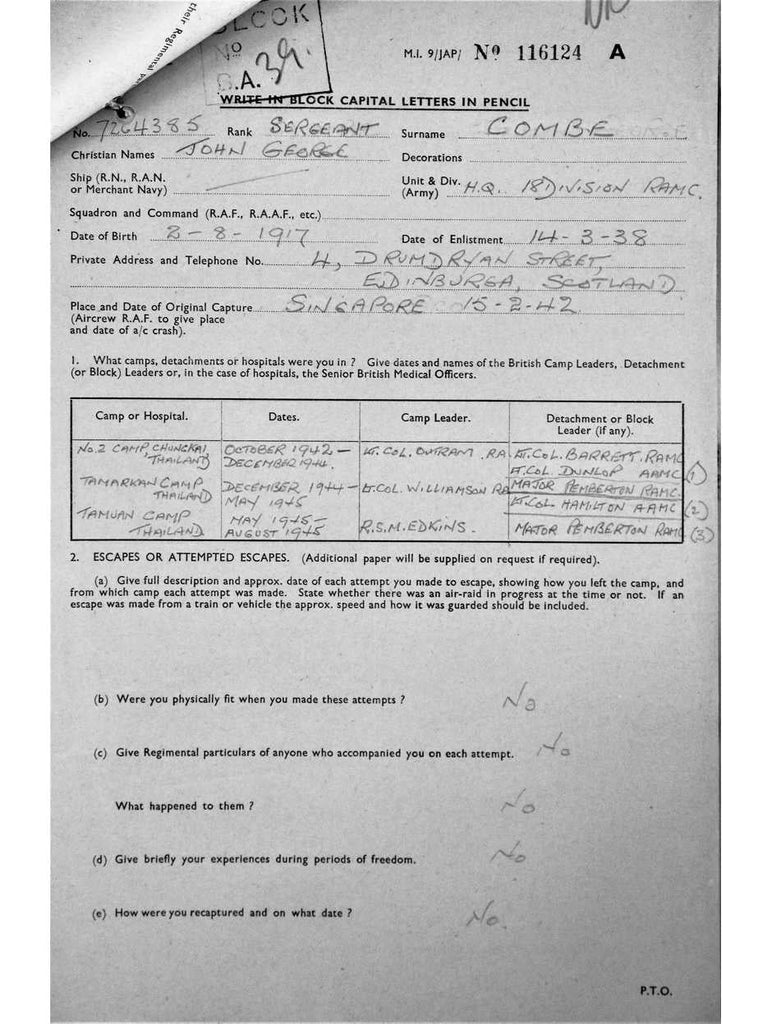 their Regimental
BLOCK
No
B.A. 39.
M.I. 9/JAP/ No 116124 A
WRITE IN BLOCK CAPITAL LETTERS IN PENCIL
No. 7264385 Rank SERGEANT Surname COMBE
Christian Names JOHN GEORGE Decorations
Ship (R.N., R.A.N. or Merchant Navy)
Unit & Div. (Army) H.Q. 18 DIVISION RAMC.
Squadron and Command (R.A.F., R.A.A.F., etc.)
Date of Birth 2-8-1917 Date of Enlistment 14-3-38
Private Address and Telephone No. 4, DRUMDRYAN STREET,
EDINBURGH, SCOTLAND
Place and Date of Original Capture SINGAPORE 15-2-42
(Aircrew R.A.F. to give place
and date of a/c crash).
1. What camps, detachments or hospitals were you in ? Give dates and names of the British Camp Leaders, Detachment
(or Block) Leaders or, in the case of hospitals, the Senior British Medical Officers.
Camp or Hospital. Dates. Camp Leader. Detachment or Block Leader (if any).
No.2 CAMP, CHUNGKAI, THAILAND OCTOBER 1942 – DECEMBER 1944. LT. COL. OUTRAM. RA LT. COL. BARRETT. RAMC
LT. COL. DUNLOP AAMC (1)
TAMARKAN CAMP THAILAND DECEMBER 1944 – MAY 1945 LT. COL. WILLIAMSON RA MAJOR PEMBERTON RAMC.
LT. COL. HAMILTON AAMC (2)
TAMUAN CAMP THAILAND MAY 1945 – AUGUST 1945 R.S.M. EDKINS. MAJOR PEMBERTON RAMC (3)
2. ESCAPES OR ATTEMPTED ESCAPES. (Additional paper will be supplied on request if required).
(a) Give full description and approx. date of each attempt you made to escape, showing how you left the camp, and
from which camp each attempt was made. State whether there was an air-raid in progress at the time or not. If an
escape was made from a train or vehicle the approx. speed and how it was guarded should be included.
(b) Were you physically fit when you made these attempts ? No
(c) Give Regimental particulars of anyone who accompanied you on each attempt. No
What happened to them ? No
(d) Give briefly your experiences during periods of freedom. No
(e) How were you recaptured and on what date ? No.
P.T.O.